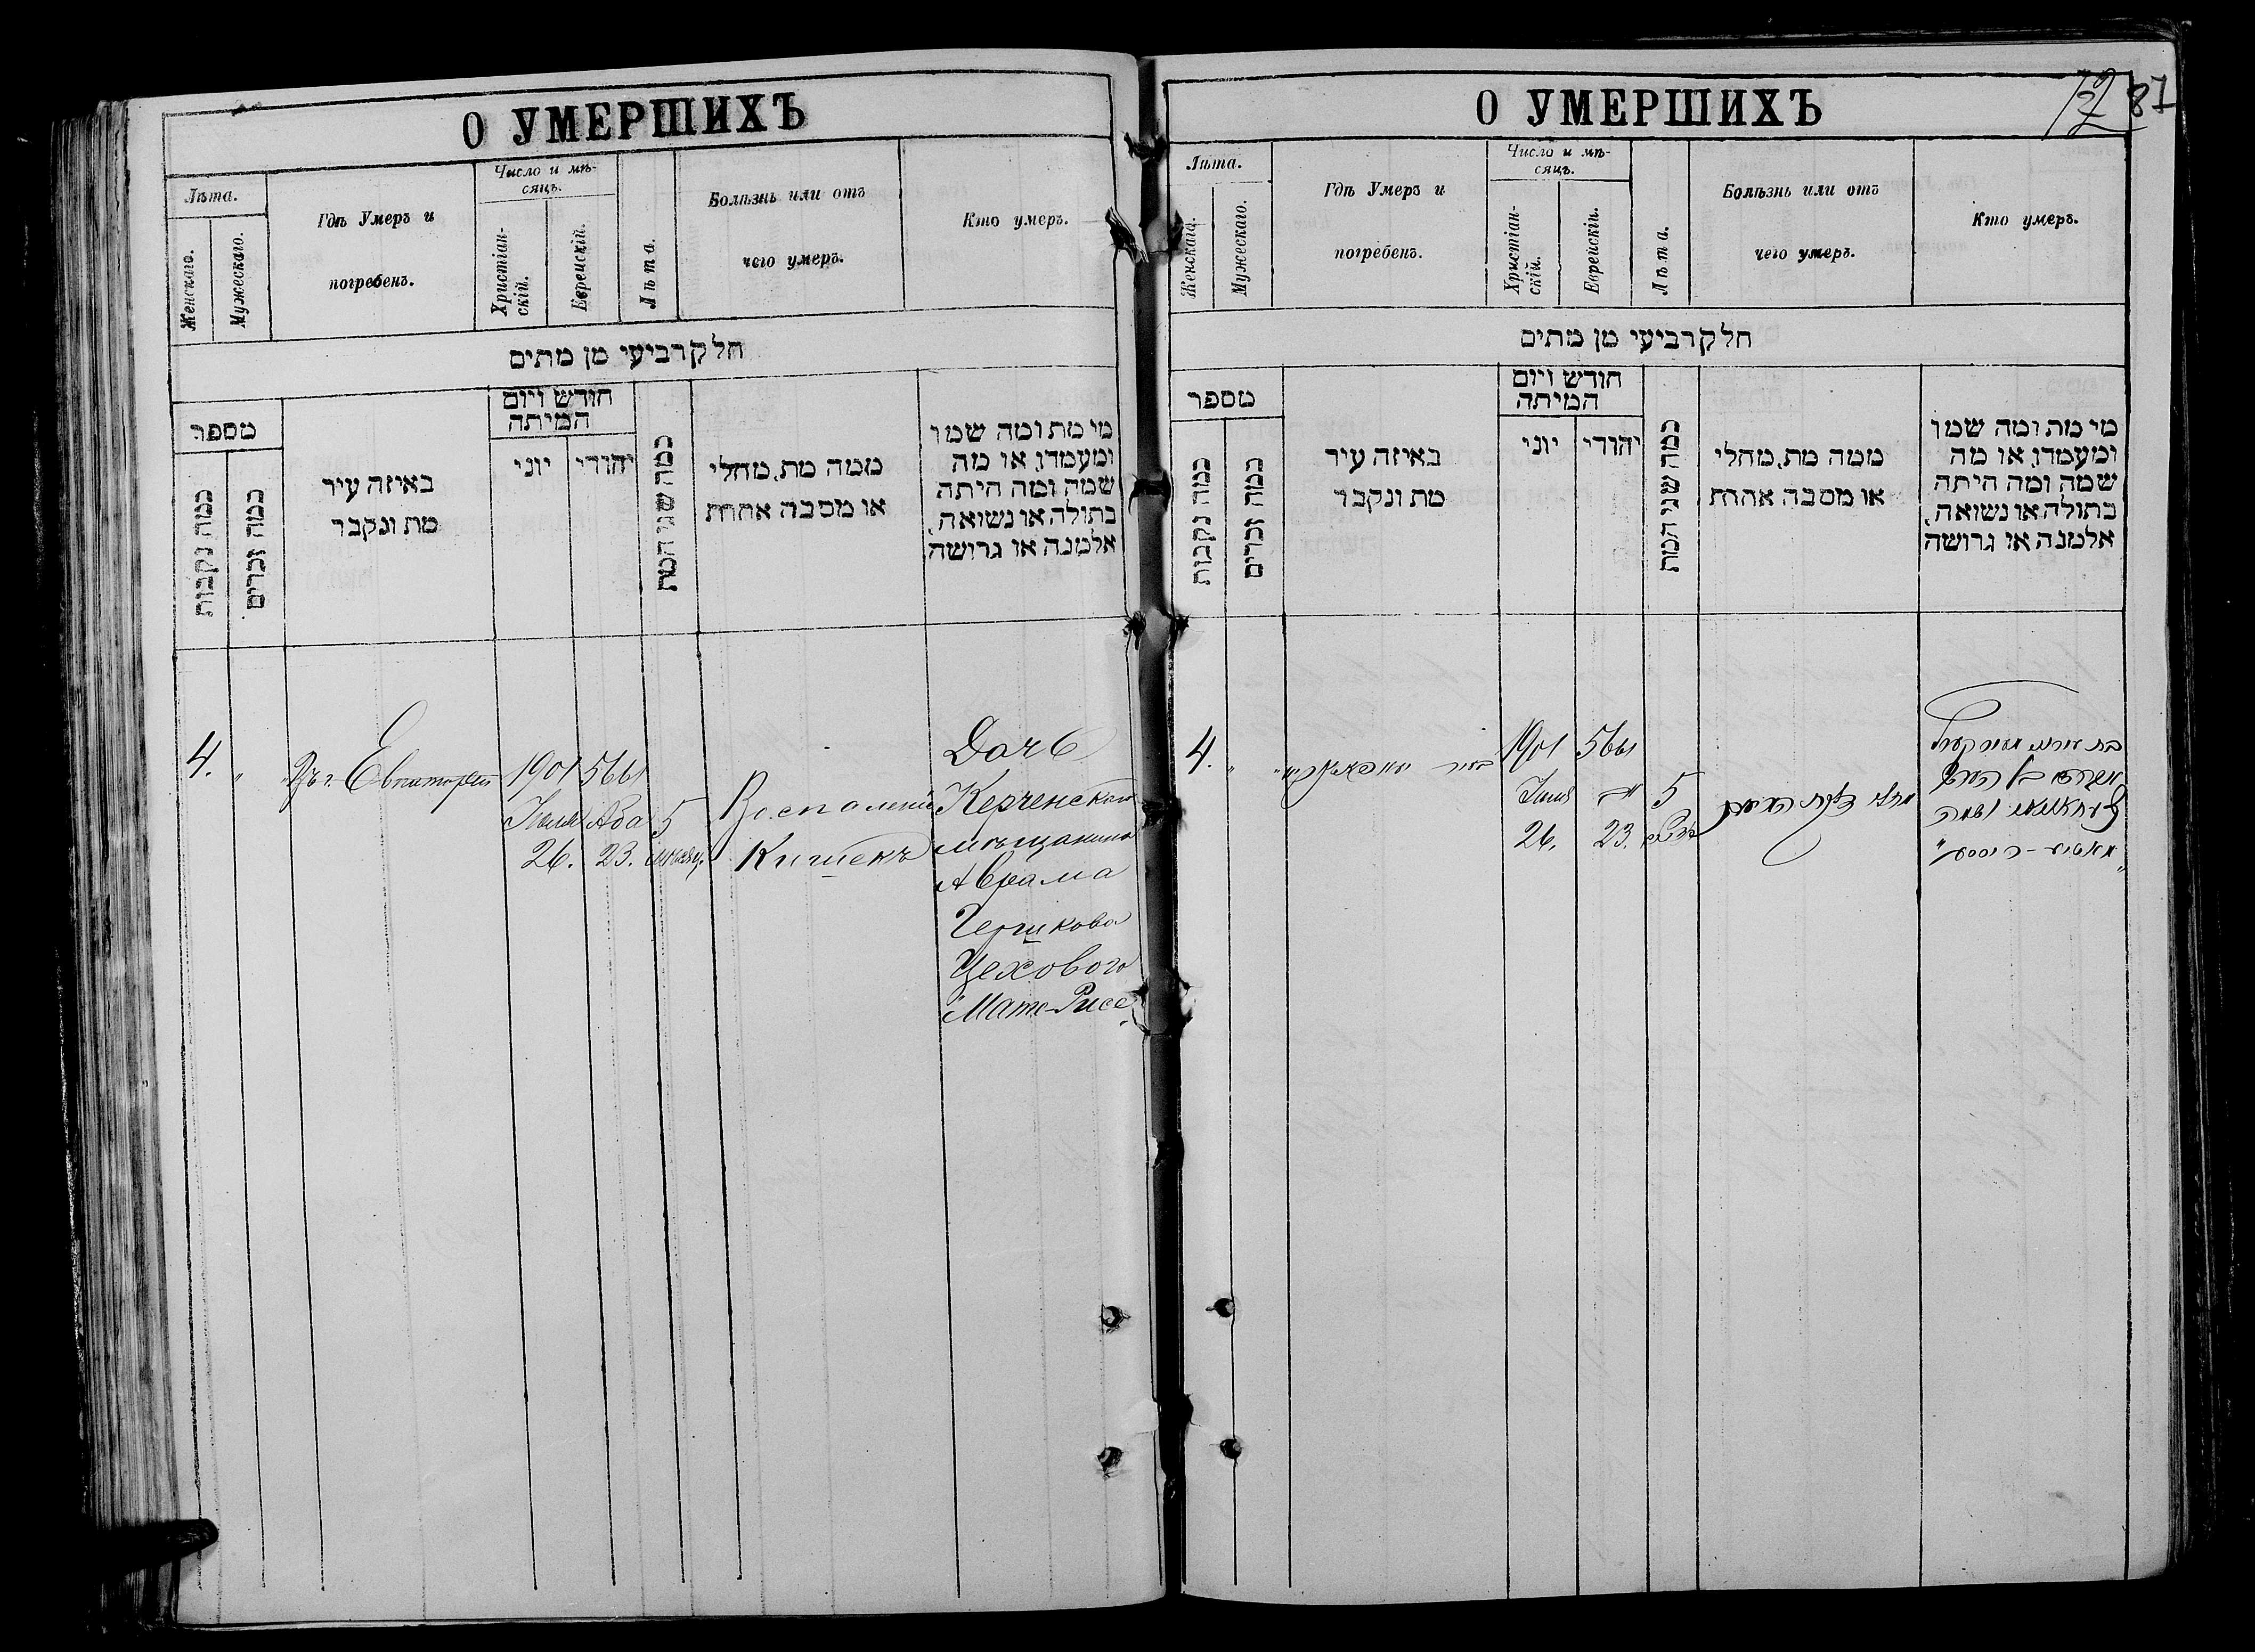 О УМЕРШИХЪ
Лѣта.
Женскаго.
Мужескаго.
Гдѣ Умеръ и
погребенъ.
Число и мѣ-
сяцъ.
Христіан-
скій.
Еврейскій.
Лѣта.
Болѣзнь или отъ
чего умеръ.
Кто умеръ.
חלק רביעי מן מתים
מספר
כמה נקבות
כמה זכרים
באיזה עיר
מת ונקבר
חודש ויום
המיתה
יוני
יהודי
כמה שני המת
ממה מת, מחלי
או מסבה אחרת
מי מת ומה שמו
ומעמדו, או מה
שמה ומה היתה
בתולה או נשואה,
אלמנה או גרושה
4. "
Въ г. Евпаторіи
1901
Іюля
26.
5661
Ава
23.
5
мѣсяц.
Воспаленіе
Кишекъ
Дочь
Керченскаго
мѣщанина
Аврама
Гершкова
Цехового
"Мате-Рисе"
О УМЕРШИХЪ
12 87
Лѣта.
Женскаго.
Мужескаго.
Гдѣ Умеръ и
погребенъ.
Число и мѣ-
сяцъ.
Христіан-
скій.
Еврейскій.
Лѣта.
Болѣзнь или отъ
чего умеръ.
Кто умеръ.
חלק רביעי מן מתים
מספר
כמה נקבות
כמה זכרים
באיזה עיר
מת ונקבר
חודש ויום
המיתה
יוני
יהודי
כמה שני המת
ממה מת, מחלי
או מסבה אחרת
מי מת ומה שמו
ומעמדו, או מה
שמה ומה היתה
בתולה או נשואה,
אלמנה או גרושה
4. "
בעיר
1901
Іюля
26.
5661
אב
23.
5
מחלי דלקת המעים
בת